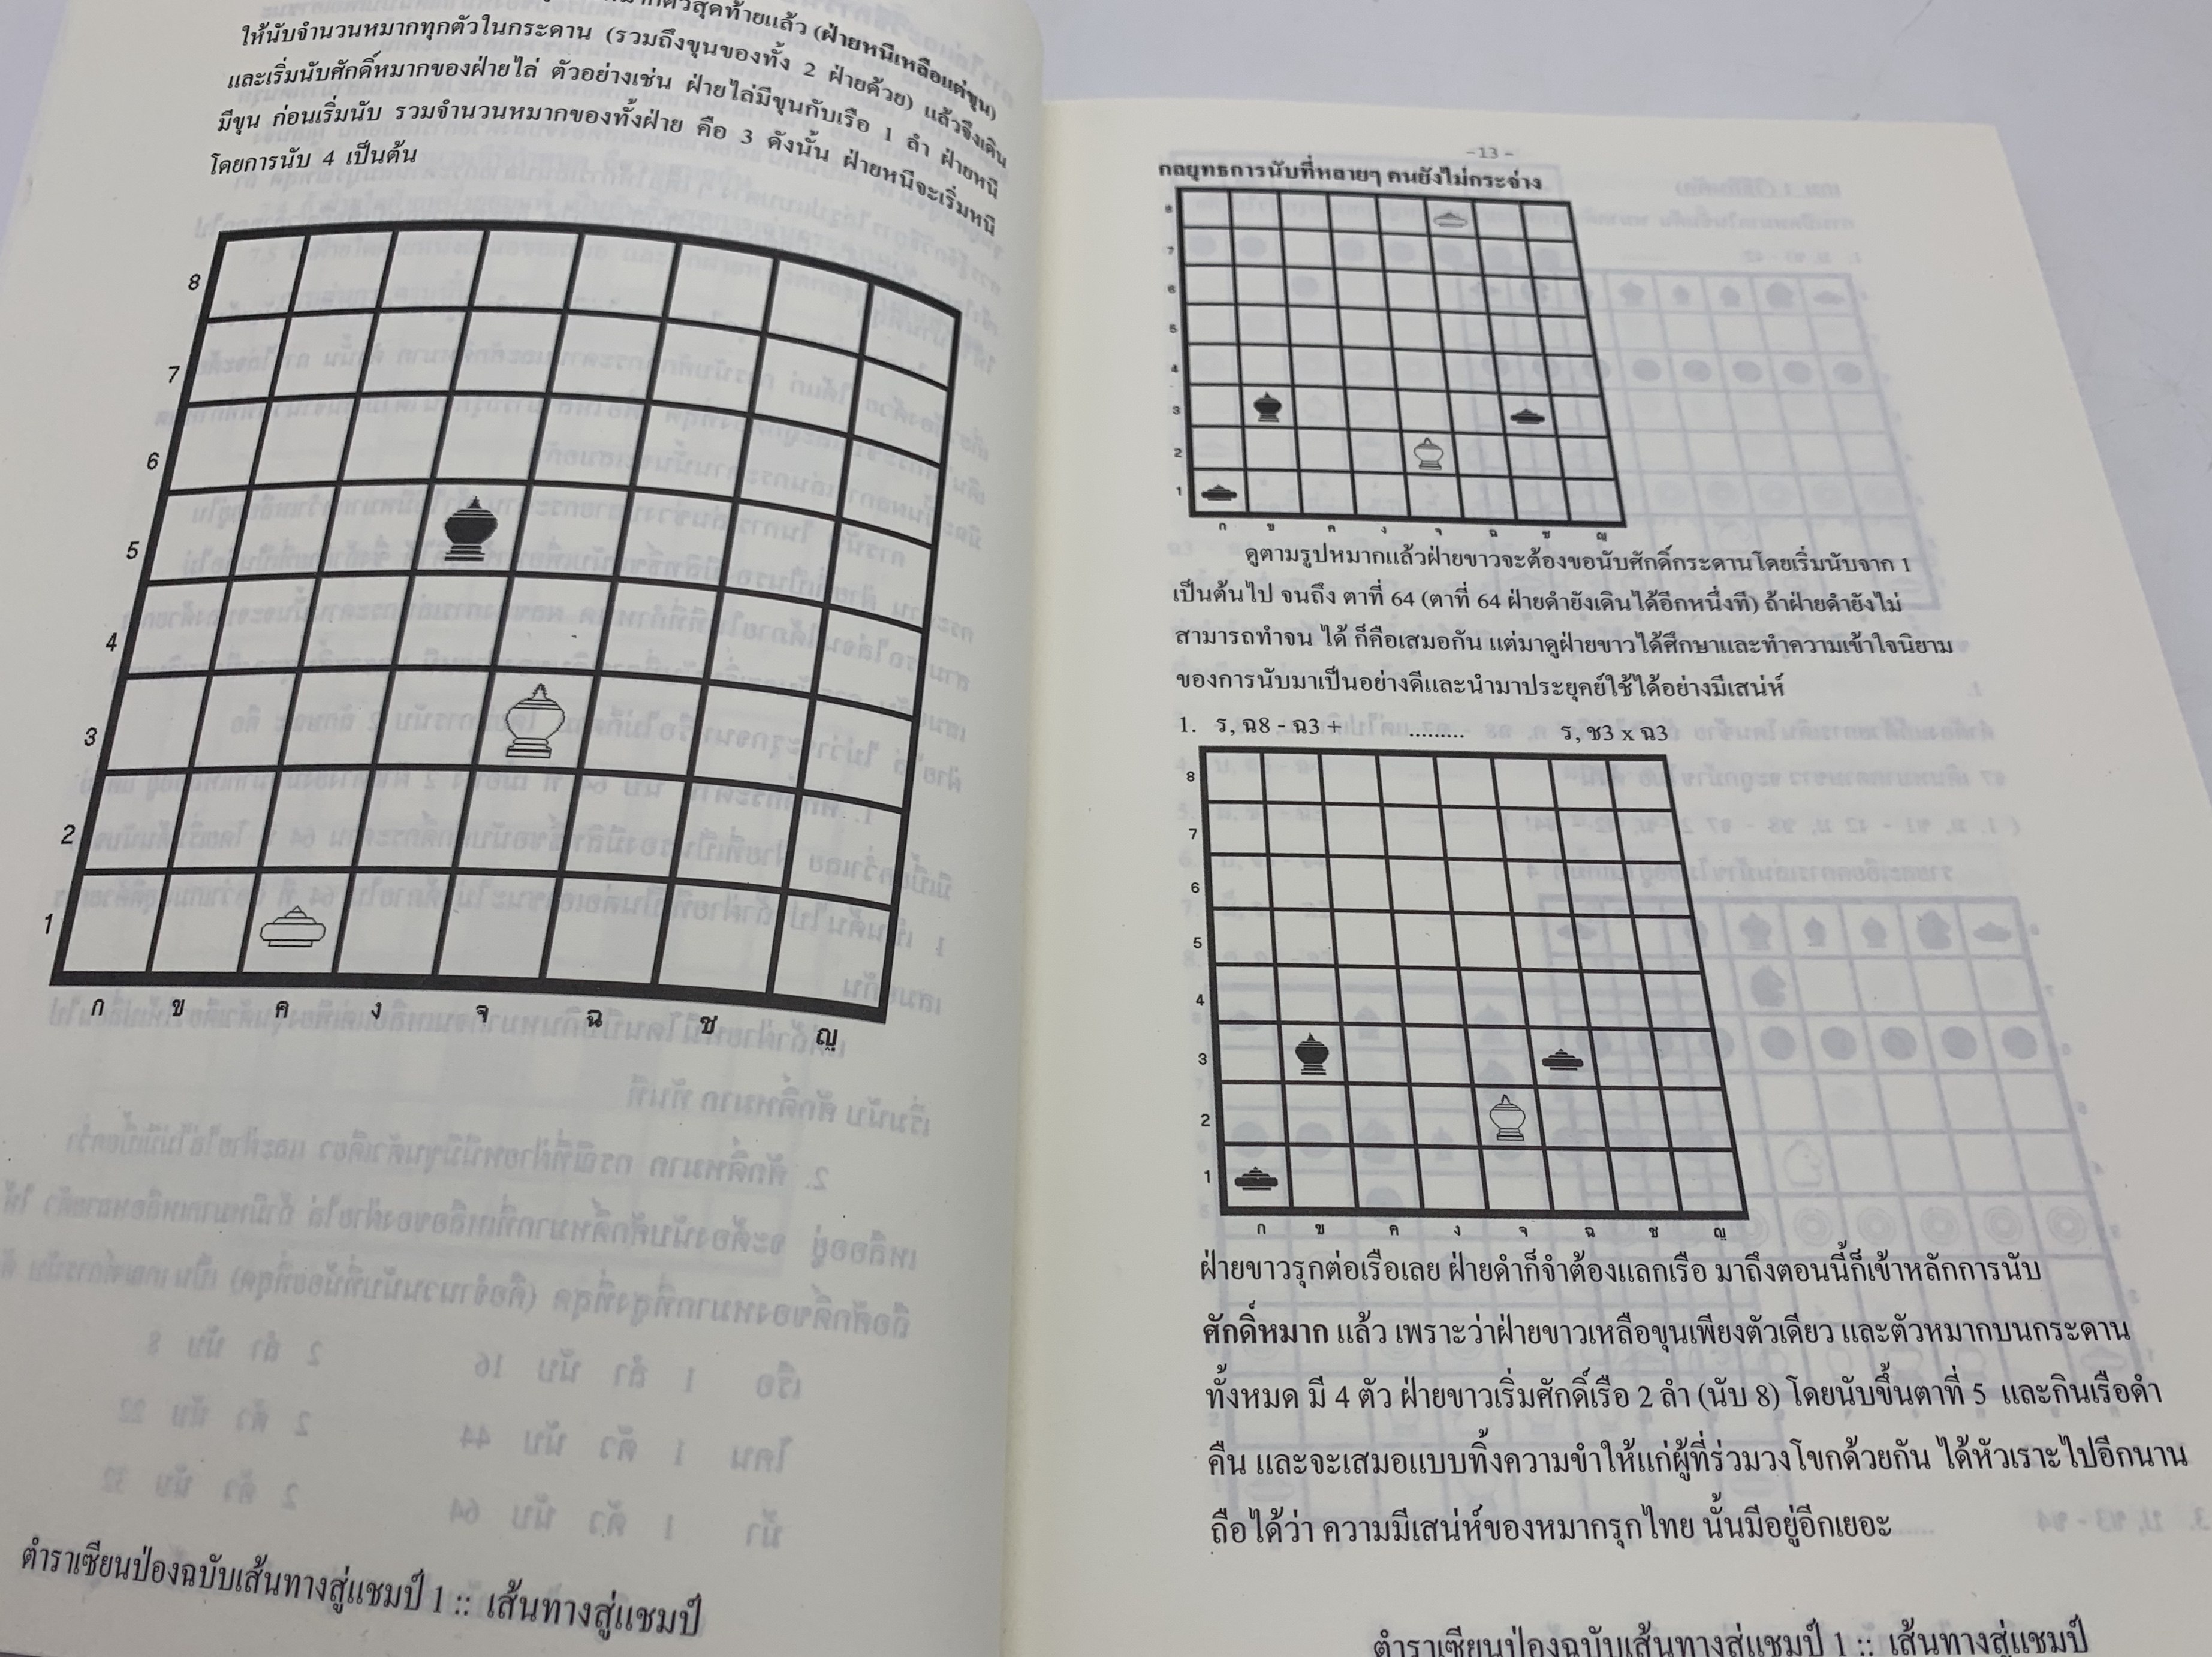 ตัวสุดท้ายแล้ว (ฝ่ายหนีเหลือแต่ขุน)
ให้นับจำนวนหมากทุกตัวในกระดาน (รวมถึงขุนของทั้ง 2 ฝ่ายด้วย) แล้วจึงเดิน
และเริ่มนับศักดิ์หมากของฝ่ายไล่ ตัวอย่างเช่น ฝ่ายไล่มีขุนกับเรือ 1 ลำ ฝ่ายหนี
มีขุน ก่อนเริ่มนับ รวมจำนวนหมากของทั้งฝ่าย คือ 3 ดังนั้น ฝ่ายหนีจะเริ่มหนี
โดยการนับ 4 เป็นต้น
8
7
6
5
4
3
2
1
ก ข ค ง จ ฉ ช ญ
ตำราเซียนป่องฉบับเส้นทางสู่แชมป์ 1 :: เส้นทางสู่แชมป์
-13-
กลยุทธการนับที่หลายๆ คนยังไม่กระจ่าง
8
7
6
5
4
3
2
1
ก ข ค ง จ ฉ ช ญ
ดูตามรูปหมากแล้วฝ่ายขาวจะต้องขอนับศักดิ์กระดานโดยเริ่มนับจาก 1
เป็นต้นไป จนถึง ตาที่ 64 (ตาที่ 64 ฝ่ายดำยังเดินได้อีกหนึ่งที) ถ้าฝ่ายดำยังไม่
สามารถทำจน ได้ ก็คือเสมอกัน แต่มาดูฝ่ายขาวได้ศึกษาและทำความเข้าใจนิยาม
ของการนับมาเป็นอย่างดีและนำมาประยุคย์ใช้ได้อย่างมีเสน่ห์
1. ร, ฉ8 - ฉ3 + ......... ร, ช3 x ฉ3
8
7
6
5
4
3
2
1
ก ข ค ง จ ฉ ช ญ
ฝ่ายขาวรุกต่อเรือเลย ฝ่ายดำก็จำต้องแลกเรือ มาถึงตอนนี้ก็เข้าหลักการนับ
ศักดิ์หมาก แล้ว เพราะว่าฝ่ายขาวเหลือขุนเพียงตัวเดียว และตัวหมากบนกระดาน
ทั้งหมด มี 4 ตัว ฝ่ายขาวเริ่มศักดิ์เรือ 2 ลำ (นับ 8) โดยนับขึ้นตาที่ 5 และกินเรือดำ
คืน และจะเสมอแบบทิ้งความขำให้แก่ผู้ที่ร่วมวงโขกด้วยกัน ได้หัวเราะไปอีกนาน
ถือได้ว่า ความมีเสน่ห์ของหมากรุกไทย นั้นมีอยู่อีกเยอะ
ตำราเซียนป่องฉบับเส้นทางสู่แชมป์ 1 :: เส้นทางสู่แชมป์